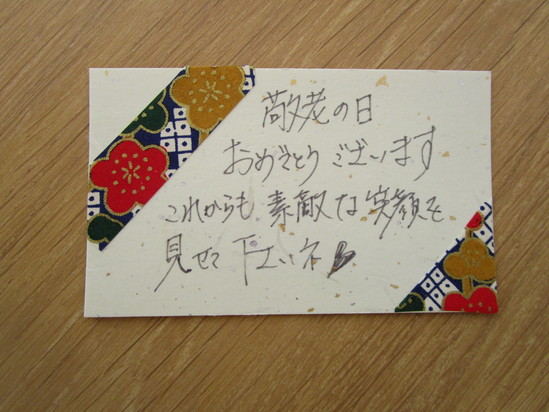 敬老の日
おめでとうございます
これからも素敵な笑顔を
見せて下さいネ